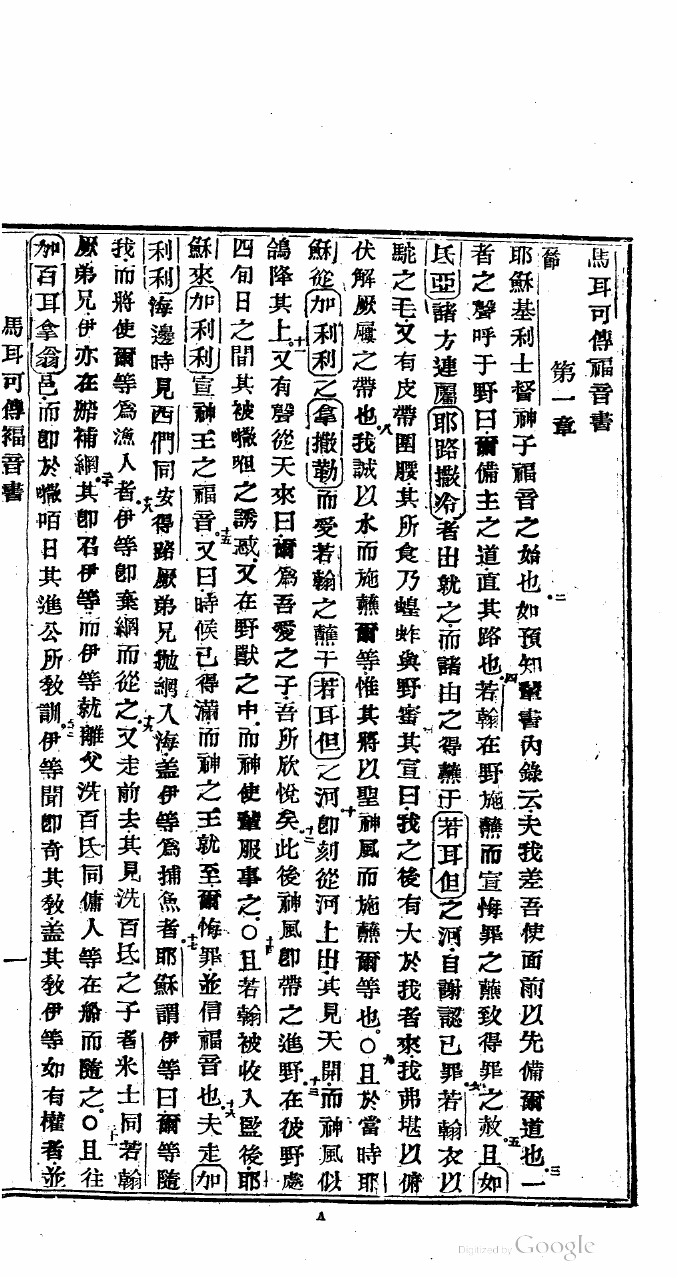 馬耳可傳福音書
第一章
節
耶穌基利士督神子福音之始也二如預知輩書內錄云夫我差吾使面前以先備爾道也三一
者之聲呼于野曰爾備主之道直其路也四若翰在野施蘸而宣悔罪之蘸致得罪之赦五且如
氐亞諸方連屬耶路撒冷者出就之而諸由之得蘸于若耳但之河自謝認己罪六若翰衣以
駝之毛又有皮帶圍腰其所食乃蝗蚱與野蜜七其宣曰我之後有大於我者來我弗堪以俯
伏解厥屨之帶也八我誠以水而施蘸爾等惟其將以聖神風而施蘸爾等也〇九且於當時耶
穌從加利利之拿撒勒而受若翰之蘸于若耳但之河十即刻從河上出其見天開而神風似
鴿降其上十一又有聲從天來曰爾為吾愛之子吾所欣悅矣十二此後神風即帶之進野十三在彼野處
四旬日之間其被㘔呾之誘惑又在野獸之中而神使輩服事之〇十四且若翰被收入監後耶
穌來加利利宣神王之福音十五又曰時候已得滿而神之王就至爾悔罪並信福音也十六夫走加
利利海邊時見西們同安得路厥弟兄拋網入海蓋伊等為捕魚者十七耶穌謂伊等曰爾等隨
我而將使爾等為漁人者十八伊等即棄網而從之十九又走前去其見洗百氐之子者米士同若翰
厥弟兄伊亦在船補網二十其即召伊等而伊等就離父洗百氐同傭人等在船而隨之〇二十一且往
加百耳拿翁邑而即於㘔咟日其進公所教訓二十二伊等聞即奇其教蓋其教伊等如有權者並
馬耳可傳福音書
一
A
Digitized by Google